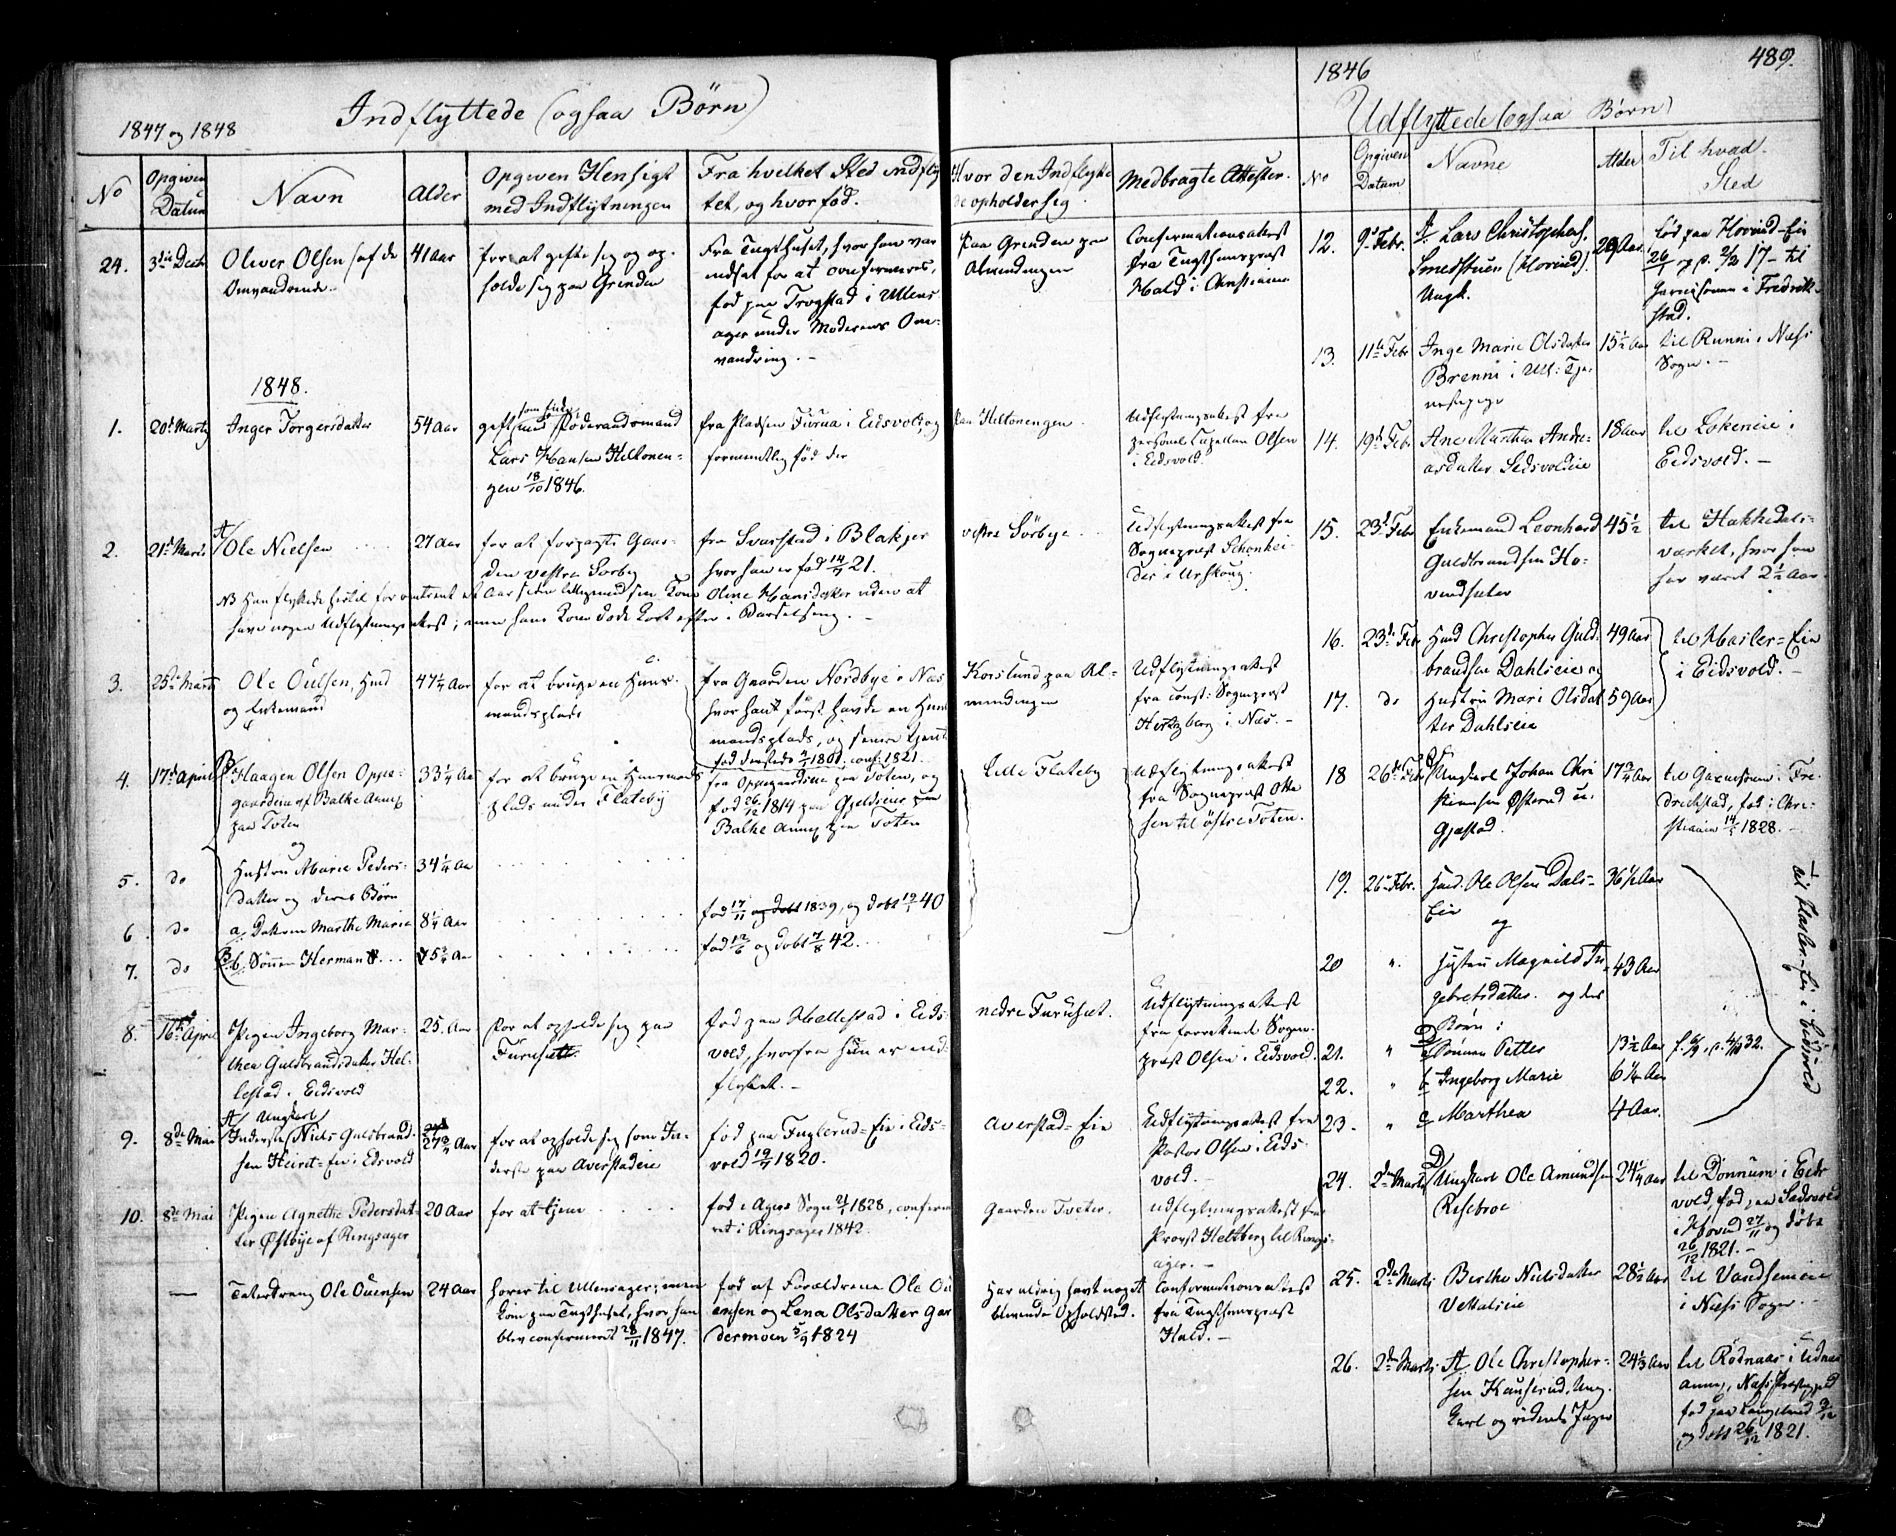 489.
1847 og 1848
Indflyttede (ogsaa Børn)
No
Opgiven Datum
Navn
Alder
Opgiven Hensigt
med Indflytningen
Fra hvilket Sted indflyt
tet, og hvor fød.
Hvor den Indflytte
de opholder sig.
Medbragte Attester.
24.
Oliver Olsen (af de
Omvandrende
41 Aar
for at gifte sig og op-
holde sig paa Grinden
Fra Tugthuset, hvor han var
indsat for at confirmeres,
fød paa Trogstad i Ullens
ager under Moderens Om-
vandring. -
Paa Grinden paa
Almindingen
Confirmationsattest
fra Tugthuusprest
Hald i Christiania
1848.
1.
20d Marts
Inger Torgersdatter
54 Aar
gift som Enke
med Føderaadsmand
Lars Hansen Heltonen-
gen 18/10 1846.
fra Pladsen Furua i Eidsvold, og
formentlig fød der
Paa Heltonengen
Udflytningsattest fra
personel Capellan Olsen
i Eidsvold.
2.
21d Marts
Ole Nielsen
27 Aar
for at forpagte Gaar-
den vestre Sørby
fra Svarstad i Blakjer
hvor han er fød 14/7 21.
vestre Sørbye
Udflytningsattest fra
Sogneprest Schenhei-
der i Urskoug.
NB Han flyttede hertil for omtrent et Aar siden tilligemed sin Kone Oline Hansdatter uden at
have nogen Udflytningsattest; men hans Kone døde kort efter i Barselseng. -
3.
25de Marts
Ole Oulsen, Huusmd
og Enkemand
47 1/4 Aar
for at bruge en Huus-
mandsplads
fra Gaarden Nordbye i Næs
hvor han først havde en Huus
mandsplads, og senere tjent
fød densteds 1801, conf. 1821.
Korslund paa Al-
mindingen
Udflytningsattest
fra const: Sogneprest
Hertzberg i Næs. -
4.
17d April
Haagen Olsen Oppe-
gaardeie af Balke Annex
paa Toten
og
33 1/4 Aar
for at bruge en Huusmands
plads under Flateby
fra Oppegaardeie paa Toten, og
fød 26/12 1814 paa Gjeldseie paa
Balke Annex paa Toten
Lille Flateby
Udflytningsattest
fra Sogneprest Otte
sen til østre Toten.
5.
do
Hustru Marie Peders-
datter og deres Børn
34 1/4 Aar
6.
do
a, Datteren Marthe Marie
8 1/4 Aar
fød 17/11 og døbt 1839, og døbt 19/1 40
7.
do
b, Sønnen Herman
5 3/4 Aar
fød 12/6 og døbt 7/8 42.
8.
16de April
Pigen Ingeborg Mar-
thea Guldbrandsdatter Hel-
lestad i Eidsvold
25. Aar
For at opholde sig paa
Furusætt.
fød paa Hællestad i Eids-
vold, hvorfra hun er ind-
flyttet. -
nedre Furusæt.
Udflytningsattest
fra forrettende Sogne-
prest Olsen i Eidsvold.
9.
8de Mai
Ungkarl
Inderste Niels Gulbrand-
sen Heiret-Eie i Edsvold
27 3/4 Aar
for at opholde sig som In-
derste paa Averstadeie
fød paa Fuglerud-Eie i Eids-
vold 19/7 1820.
Averstad-Eie
Udflytningsattest fra
Pastor Olsen i Eids
vold. -
10.
8de Mai
Pigen Agnethe Pedersdat-
ter Østbye af Ringsager
20 Aar
for at tjene
fød i Agers Sogn 21/1 1828, confirme
ret i Ringsager 1842.
Gaarden Tveter.
Udflytningsattest fra
Provst Heltberg til Rings-
ager. -
—
Taterdreng Ole Ouensen
24 Aar
hører til Ullensager; men
kom paa Tugthuset, hvor han
blev confirmeret 28/11 1847.
fød af Forældrene Ole Ou
ensen og Lena Olsdatter Gar
dermoen 5/9 1824
Har aldrig havt noget
blivende Opholdsted.
Confirmationsattest
fra Tugthuusprest
Hald. -
1846
Udflyttede (ogsaa Børn)
No
Opgiven Datum
Navne
Alder
Til hvad
Sted
12.
9d Febr.
Lars Christophers.
Smedstuen (Hovind).
Ungk.
29 Aar
fød paa Hovind-Eie
26/1 17 - til
Garnisonen i Fredrik-
stad.
13.
11te Febr
Inge Marie Olsdatter
Brenni i Ull: Tje-
nestepige
15 1/2 Aar
til Runni i Næss
Sogn. -
14.
19d Febr
Ane Marthea Andre-
asdatter Sedsvoldeie
18 Aar
til Løkeneie i
Eidsvold. -
15.
23d Febr
Enkemand Leonhard
Guldbrandsen Ho-
vindsæter
45 1/2
til Hakkedals-
værket, hvor han
har været 2 1/2 Aar.
16.
23d Febr
Huusmd Christopher Guld-
brandsen Dahlseie og
49 Aar
til Hasler-Eie
i Eidsvold. -
17.
do
Hustru Mari Olsdat
ter Dahlseie
59 Aar
18
26de Febr
Ungkarl Johan Chri
stiansen Østerud u.
Gjestad.
17 3/4 Aar
til Garnisonen i Fre-
drickstad, fød i Chri-
stiania 14/5 1828. -
19.
26d Febr.
Huusmd. Ole Olsen Dals-
Eie
og
36 1/2 Aar
til Hasler-Eie i Eidsvold
20
"
Hustru Magnild In-
gebretsdatter. og deres
Børn:
43 Aar
21.
"
a Sønnen Petter
13 1/2 Aar
22.
"
b Ingeborg Marie
6 1/4 Aar
23.
"
c Marthea
4 Aar.
24.
2den Marts
Ungkarl Ole Amundsen
Risebroe
24 1/4 Aar
til Dønnum i Eids
vold, fød paa Sedsvold
i Hovind 27/11 og døbt
26/12 1821. -
25.
2den Marts
Berthe Nielsdatter
Vettalseie
28 1/2 Aar
til Vandsemeie
i Næss Sogn. -
26.
2den Marts
Ole Christopher-
sen Kauserud, Ung-
karl og ridende Jæger
24 1/3 Aar
til Rødnaas i Udnæs
Annex, Næss Prestegjeld
fød paa Langelund
og døbt 26/12 1821.